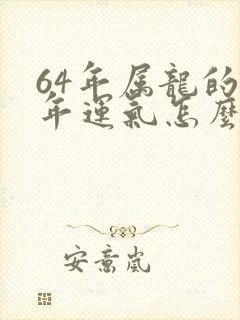 64年属龍的
年運氣怎麼
安意嵐